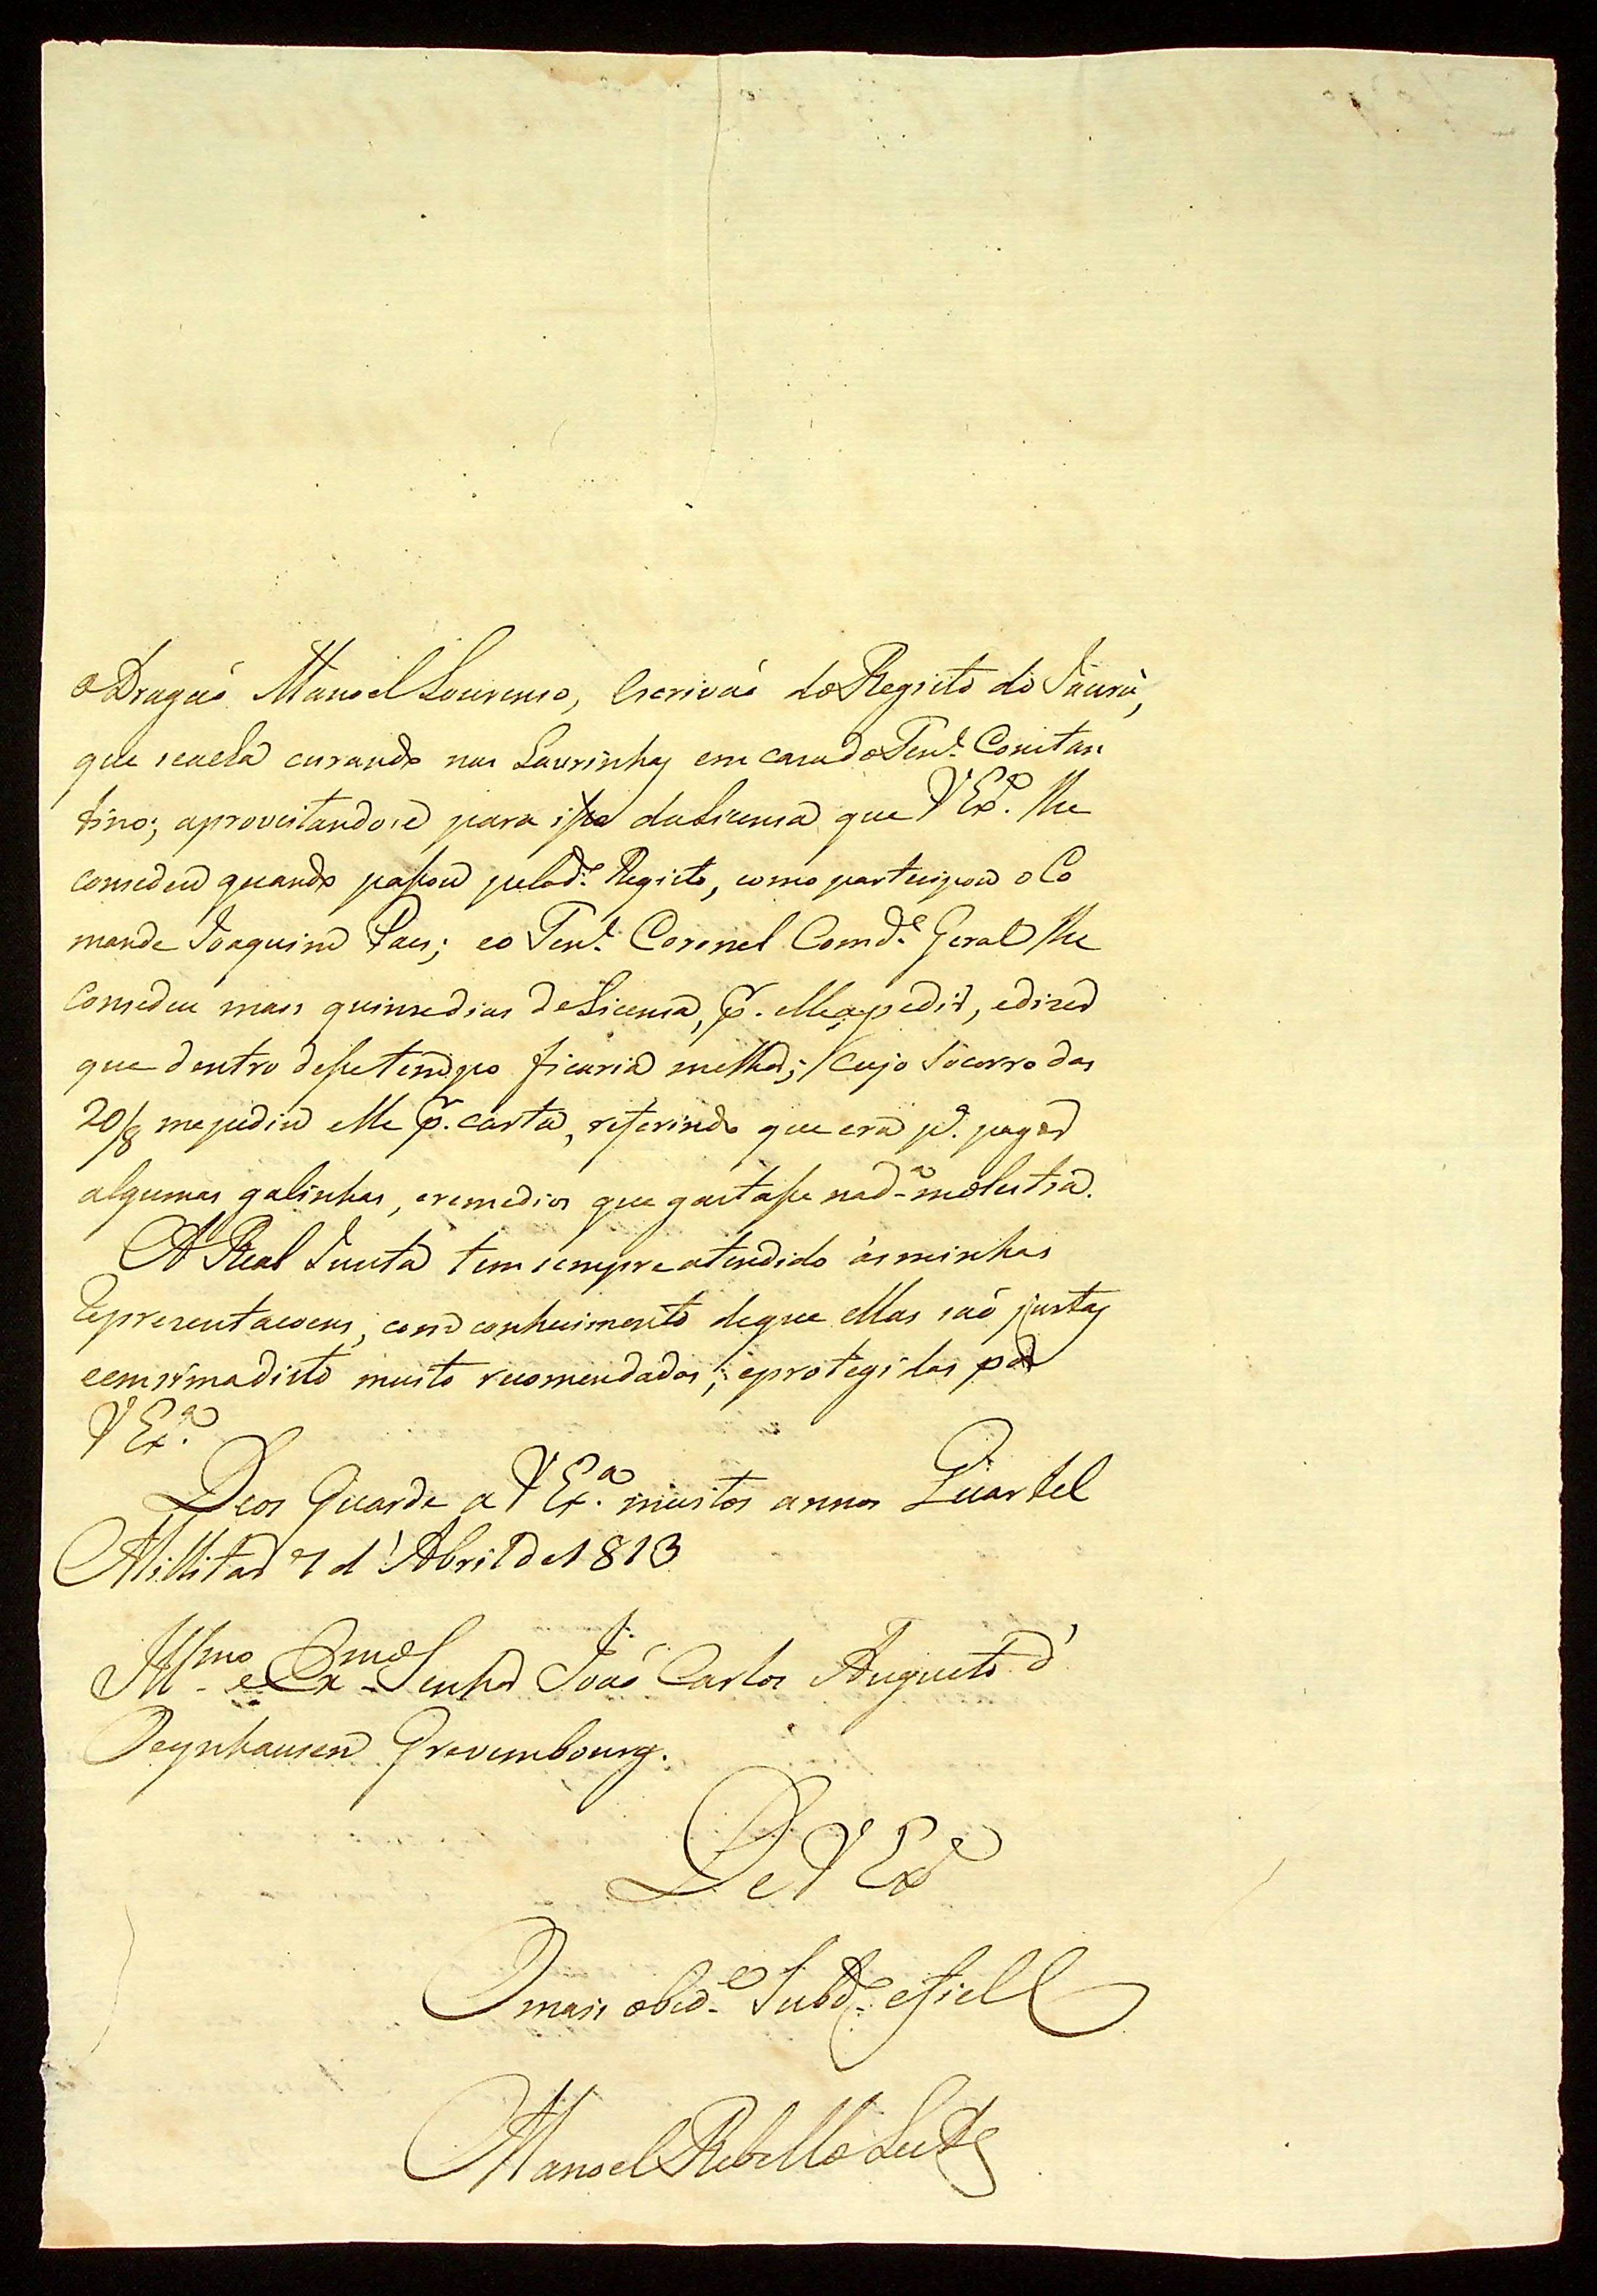 o Dragaõ Manoel Lourenso, Escrivaõ do Registo do Jaurú,
que se acha curando nas Lavrinhas em casa do Ten.e Constan
tino; aproveitandose para isso da Licensa que V Ex.a lhe
consedeu quando passou pelo d.o Registo, como partecipou o Co
mande Joaquim Paes; e o Ten.e Coronel Comd.e Geral lhe
Consedeu mais quinse dias de Licensa, p.r elle a pedir, e dizer
que dentro desse tempo ficaria melhor; cujo Socorro das
20/8 me pediu elle p.r carta, referindo que era p.a pagar
algumas galinhas, e remedios que gastasse na d.a molestia.
A Real Junta tem sempre atendido ás minhas
representacoens, com conhecimento de que ellas saõ justas
e em sima disto muito recomendadas; e protegidas por
V Ex.a
Deos Guarde a V Ex.a muitos annos Quartel
Millitar 7 d'Abril de 1813
Ill.mo e Ex.mo Senhor Joaõ Carlos Augusto d'
Oeynhausen Grevembourg.
De V Ex.a
O mais obed.e Subd.o e fiel
Manoel Rebello Leite